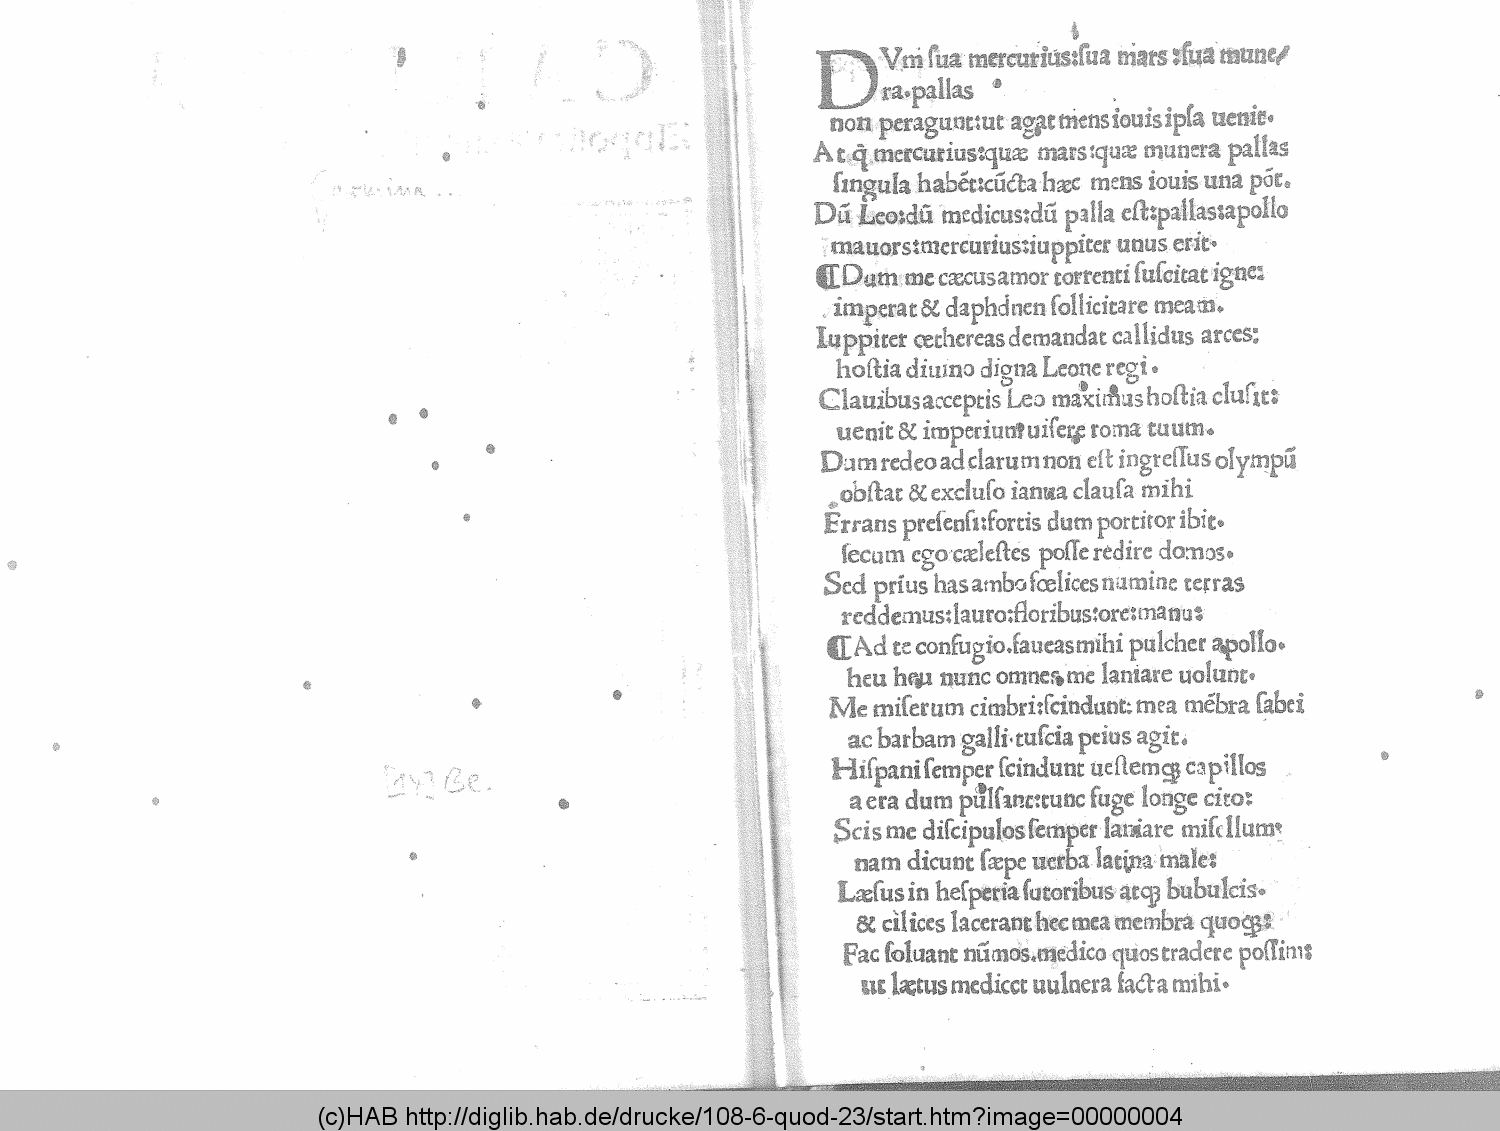 DVm̄ ſua mercurius:ſua mars :ſua mune/
ra.pallas
non peragunt:ut agat mens iouis ipſa uenit.
At q̄ mercurius:quæ mars:quæ munera pallas
ſingula habēt:cūcta hæc mens iouis una pōt.
Dū Leo:dū medicus:dū palla eſt:pallas:apollo
mauors:mercurius:iuppiter unus erit.
¶Dum me cæcus amor torrenti ſuſcitat igne:
imperat & daphdnen ſollicitare meam.
Iuppiter œthereas demandat callidus arces:
hoſtia diuino digna Leone regi.
Clauibus acceptis Leo maximus hoſtia cluſit:
uenit & imperium uiſere roma tuum.
Dum redeo ad clarum non eſt ingreſſus olympū
obſtat & excluſo ianua clauſa mihi
Errans preſenſi:fortis dum portitor ibit.
ſecum ego cæleſtes poſſe redire domos.
Sed prius has ambo fœlices numine terras
reddemus:lauro:floribus:ore:manu:
¶Ad te confugio.faueas mihi pulcher apollo.
heu heu nunc omnes me laniare uolunt.
Me miſerum cimbri:ſcindunt: mea mēbra ſabei
ac barbam galli.tuſcia peius agit.
Hiſpani ſemper ſcindunt ueſtemqꝫ capillos
aera dum pulſant:tunc fuge longe cito:
Scis me diſcipulos ſemper laniare miſellum:
nam dicunt ſæpe uerba latina male:
Læſus in heſperia ſutoribus atqꝫ bubulcis.
& cilices lacerant hec mea membra quoqꝫ:
Fac ſoluant nūmos.medico quos tradere poſſim:
ut lætus medicet uulnera facta mihi.
(c)HAB http://diglib.hab.de/drucke/108-6-quod-23/start.htm?image=00000004